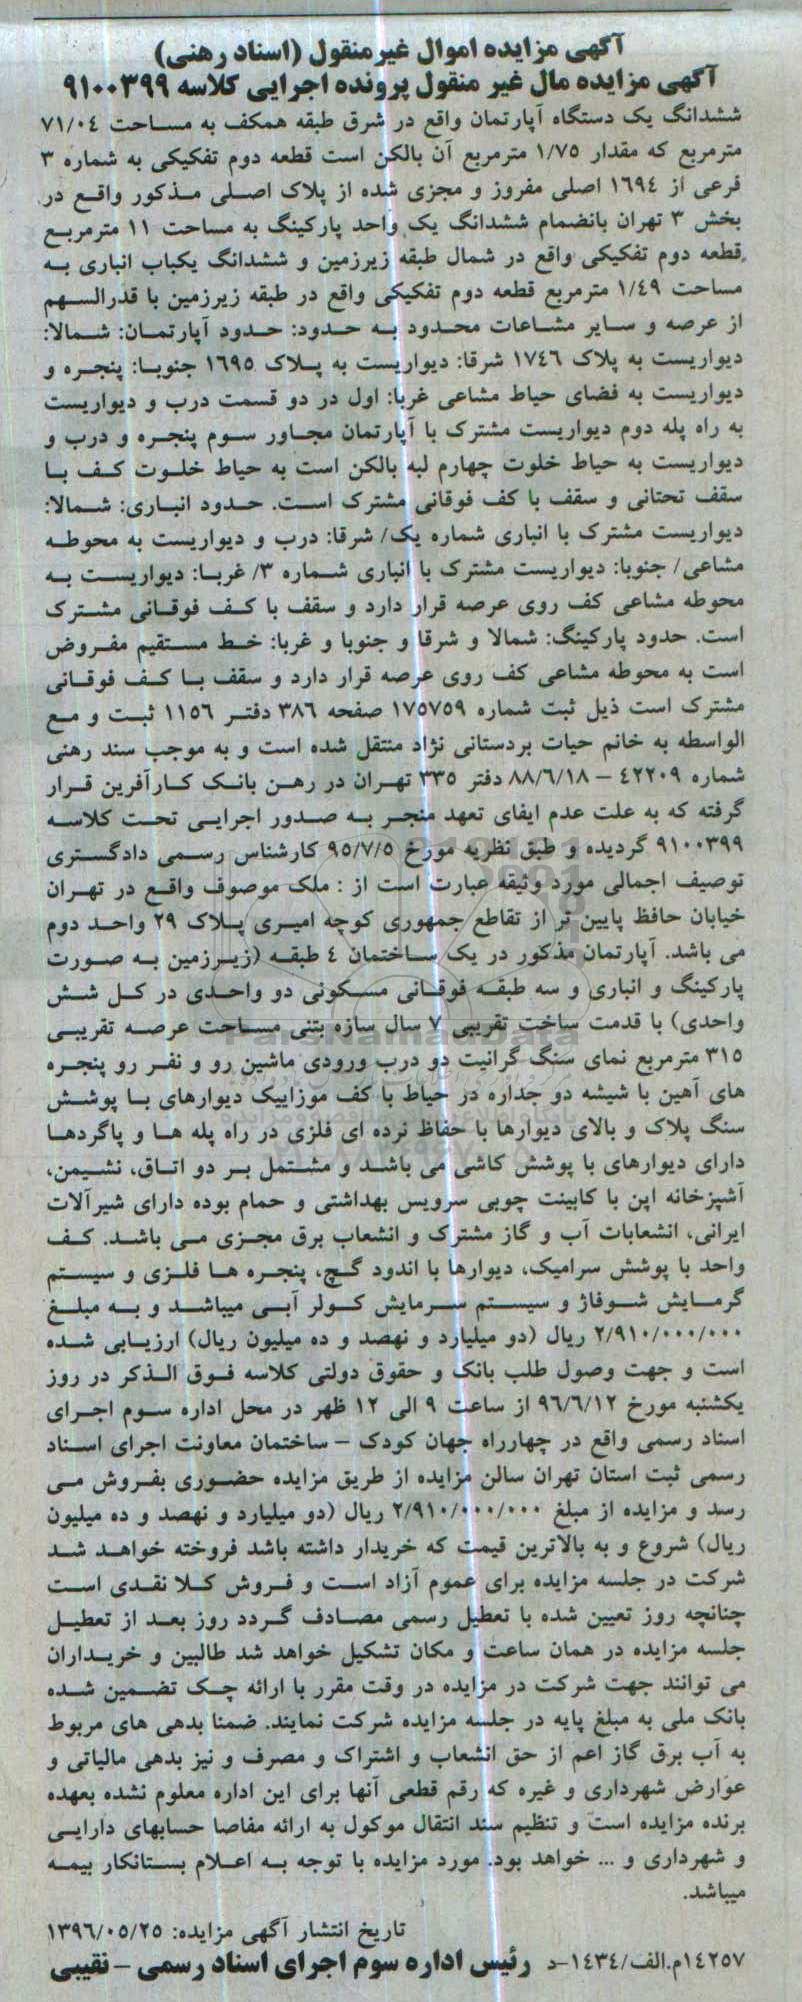 آگهی مزایده اموال غیرمنقول (اسناد رهنی)
آگهی مزایده مال غیر منقول پرونده اجرایی کلاسه ۹۱۰۰۳۹۹
ششدانگ یک دستگاه آپارتمان واقع در شرق طبقه همکف به مساحت ۷۱/۰۴
مترمربع که مقدار ۱/۷۵ مترمربع آن بالکن است قطعه دوم تفکیکی به شماره ۳
فرعی از ۱۶۹۴ اصلی مفروز و مجزی شده از پلاک اصلی مذکور واقع در
بخش ۳ تهران بانضمام ششدانگ یک واحد پارکینگ به مساحت ۱۱ مترمربع
قطعه دوم تفکیکی واقع در شمال طبقه زیرزمین و ششدانگ یکباب انباری به
مساحت ۱/۴۹ مترمربع قطعه دوم تفکیکی واقع در طبقه زیرزمین با قدرالسهم
از عرصه و سایر مشاعات محدود به حدود: حدود آپارتمان: شمالا:
دیواریست به پلاک ۱۷۴۶ شرقا: دیواریست به پلاک ۱۶۹۵ جنوبا: پنجره و
دیواریست به فضای حیاط مشاعی غربا: اول در دو قسمت درب و دیواریست
به راه پله دوم دیواریست مشترک با آپارتمان مجاور سوم پنجره و درب و
دیواریست به حیاط خلوت چهارم لبه بالکن است به حیاط خلوت کف با
سقف تحتانی و سقف با کف فوقانی مشترک است. حدود انباری: شمالا:
دیواریست مشترک با انباری شماره یک/ شرقا: درب و دیواریست به محوطه
مشاعی/ جنوبا: دیواریست مشترک با انباری شماره ۳/ غربا: دیواریست به
محوطه مشاعی کف روی عرصه قرار دارد و سقف با کف فوقانی مشترک
است. حدود پارکینگ: شمالا و شرقا و جنوبا و غربا: خط مستقیم مفروض
است به محوطه مشاعی کف روی عرصه قرار دارد و سقف با کف فوقانی
مشترک است ذیل ثبت شماره ۱۷۵۷۵۹ صفحه ۳۸۶ دفتر ۱۱۵۶ ثبت و مع
الواسطه به خانم حیات بردستانی نژاد منتقل شده است و به موجب سند رهنی
شماره ۴۲۲۰۹ – ۸۸/۶/۱۸ دفتر ۳۳۵ تهران در رهن بانک کارآفرین قرار
گرفته که به علت عدم ایفای تعهد منجر به صدور اجرایی تحت کلاسه
۹۱۰۰۳۹۹ گردیده و طبق نظریه مورخ ۹۵/۷/۵ کارشناس رسمی دادگستری
توصیف اجمالی مورد وثیقه عبارت است از : ملک موصوف واقع در تهران
خیابان حافظ پایین تر از تقاطع جمهوری کوچه امیری پلاک ۲۹ واحد دوم
می باشد. آپارتمان مذکور در یک ساختمان ۴ طبقه (زیرزمین به صورت
پارکینگ و انباری و سه طبقه فوقانی مسکونی دو واحدی در کل شش
واحدی) با قدمت ساخت تقریبی ۷ سال سازه بتنی مساحت عرصه تقریبی
۳۱۵ مترمربع نمای سنگ گرانیت دو درب ورودی ماشین رو و نفر رو پنجره
های آهنین با شیشه دو جداره در حیاط با کف موزاییک دیوارهای با پوشش
سنگ پلاک و بالای دیوارها با حفاظ نرده ای فلزی در راه پله ها و پاگردها
دارای دیوارهای با پوشش کاشی می باشد و مشتمل بر دو اتاق، نشیمن،
آشپزخانه اپن با کابینت چوبی سرویس بهداشتی و حمام بوده دارای شیرآلات
ایرانی، انشعابات آب و گاز مشترک و انشعاب برق مجزی می باشد. کف
واحد با پوشش سرامیک، دیوارها با اندود گچ، پنجره ها فلزی و سیستم
گرمایش شوفاژ و سیستم سرمایش کولر آبی میباشد و به مبلغ
۲/۹۱۰/۰۰۰/۰۰۰ ریال (دو میلیارد و نهصد و ده میلیون ریال) ارزیابی شده
است و جهت وصول طلب بانک و حقوق دولتی کلاسه فوق الذکر در روز
یکشنبه مورخ ۹۶/۶/۱۲ از ساعت ۹ الی ۱۲ ظهر در محل اداره سوم اجرای
اسناد رسمی واقع در چهارراه جهان کودک – ساختمان معاونت اجرای اسناد
رسمی ثبت استان تهران سالن مزایده از طریق مزایده حضوری بفروش می
رسد و مزایده از مبلغ ۲/۹۱۰/۰۰۰/۰۰۰ ریال (دو میلیارد و نهصد و ده میلیون
ریال) شروع و به بالاترین قیمت که خریدار داشته باشد فروخته خواهد شد
شرکت در جلسه مزایده برای عموم آزاد است و فروش کلا نقدی است
چنانچه روز تعیین شده با تعطیل رسمی مصادف گردد روز بعد از تعطیل
جلسه مزایده در همان ساعت و مکان تشکیل خواهد شد طالبین و خریداران
می توانند جهت شرکت در مزایده در وقت مقرر با ارائه چک تضمین شده
بانک ملی به مبلغ پایه در جلسه مزایده شرکت نمایند. ضمنا بدهی های مربوط
به آب برق گاز اعم از حق انشعاب و اشتراک و مصرف و نیز بدهی مالیاتی و
عوارض شهرداری و غیره که رقم قطعی آنها برای این اداره معلوم نشده بعهده
برنده مزایده است و تنظیم سند انتقال موکول به ارائه مفاصا حسابهای دارایی
و شهرداری و ... خواهد بود. مورد مزایده با توجه به اعلام بستانکار بیمه
میباشد.
تاریخ انتشار آگهی مزایده: ۱۳۹۶/۰۵/۲۵
۱۴۲۵۷م.الف/۱۴۳۴-د رئیس اداره سوم اجرای اسناد رسمی – نقیبی